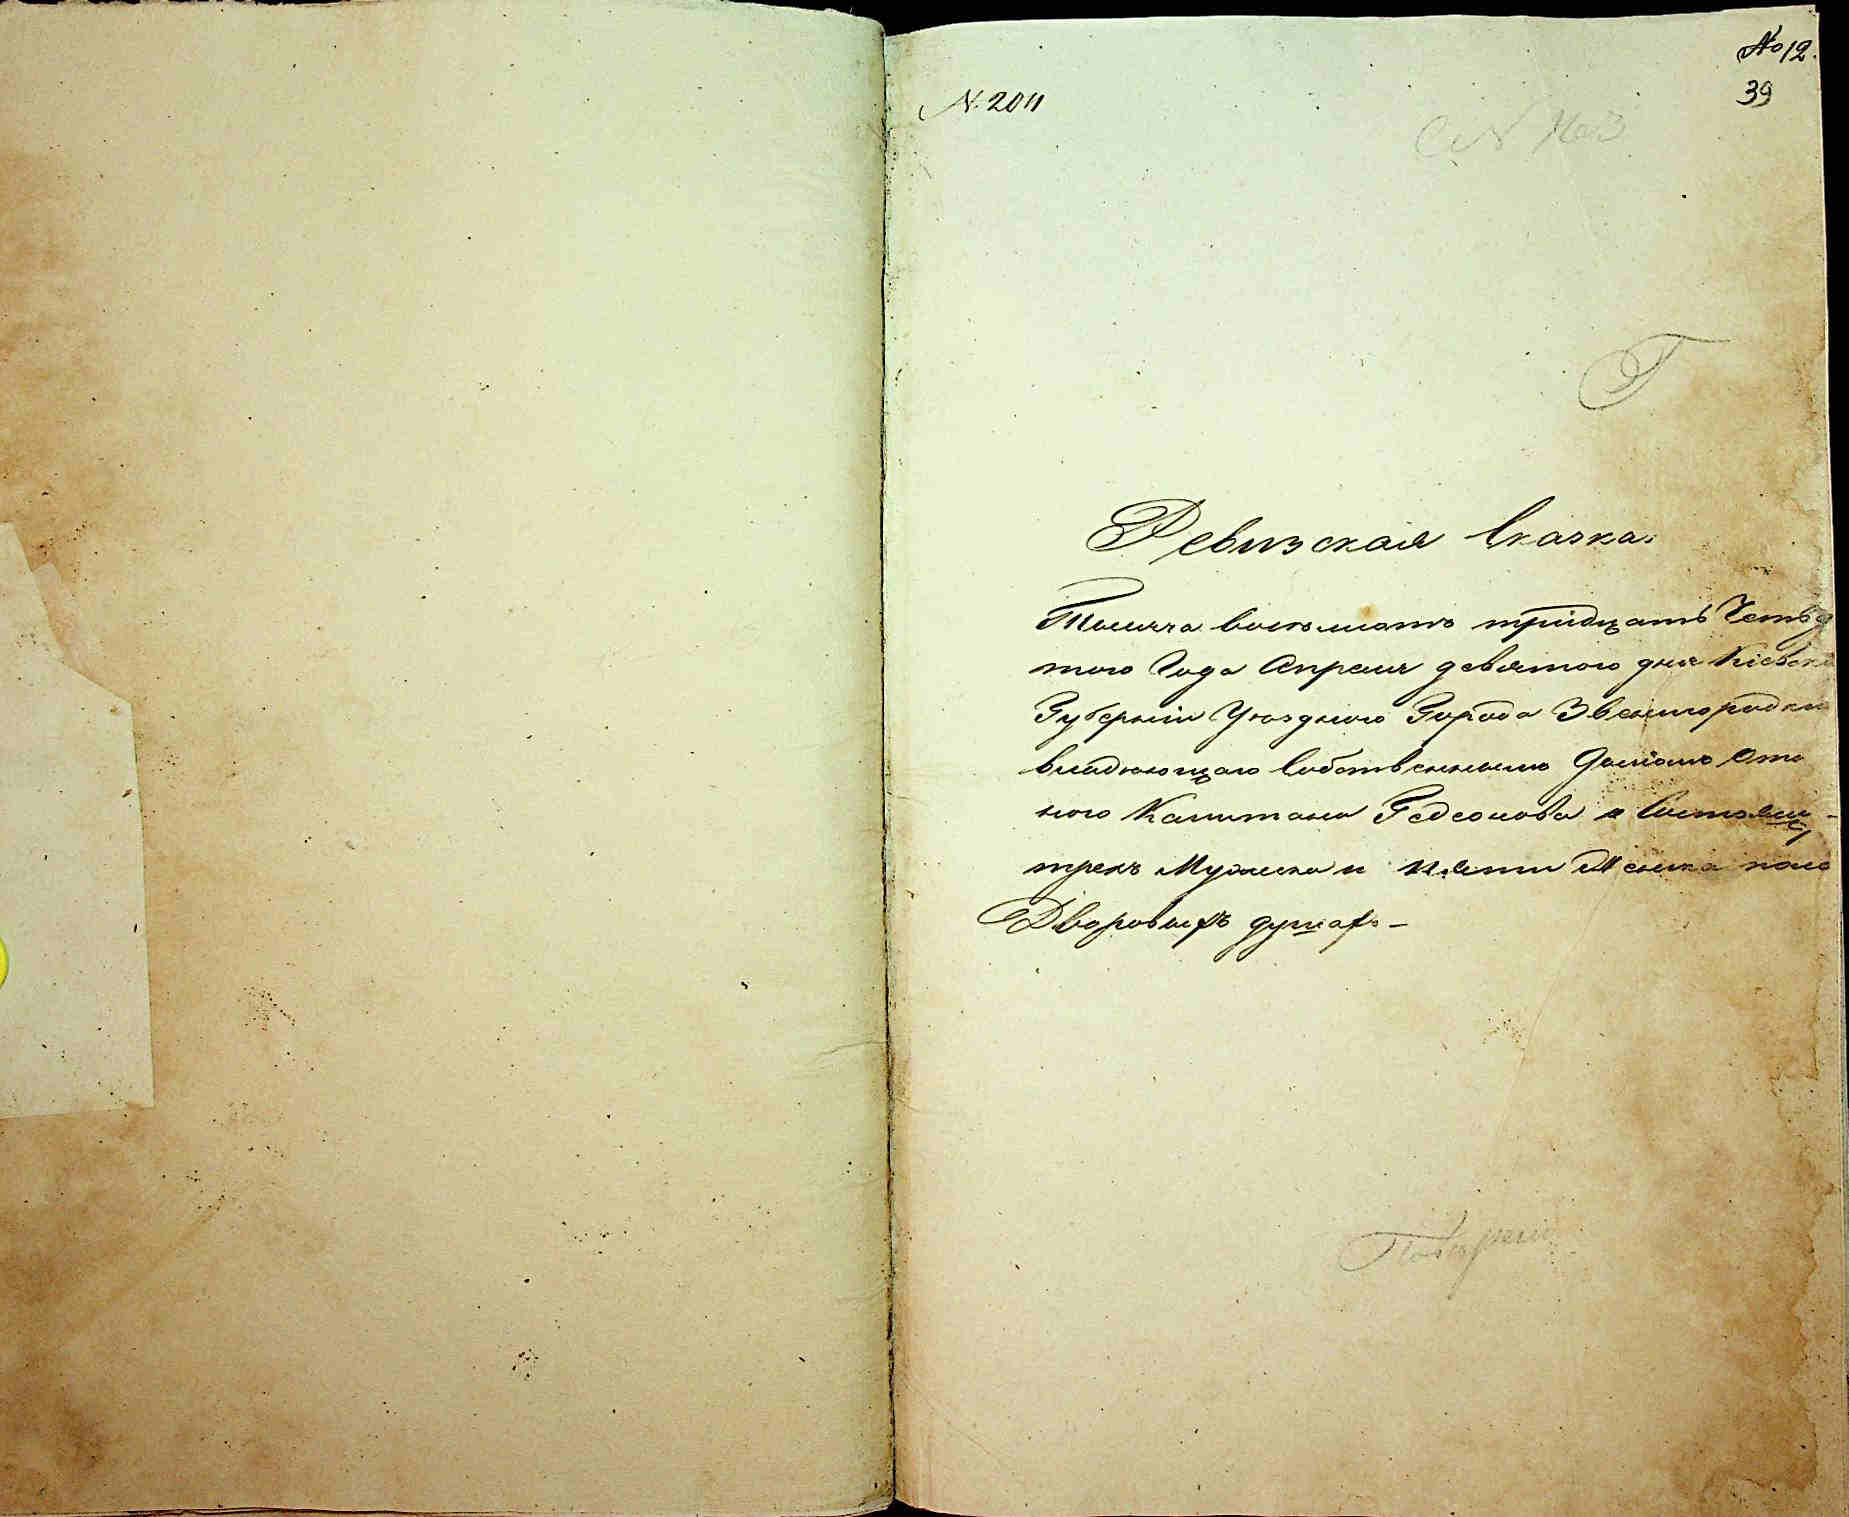 № 12.
39
N. 2011
Ревизская Сказка.
Тысяча восемьсотъ тридцать Четвер
таго Года Апреля девятого дня Кіевской
Губерніи Уезднаго Города Звенигородки
владеющаго Собственнымъ Домомъ
Капитана Гедеонова о Состоящ
трехъ Мужеска и пяти Женска пола
Дворовыхъ душахъ –